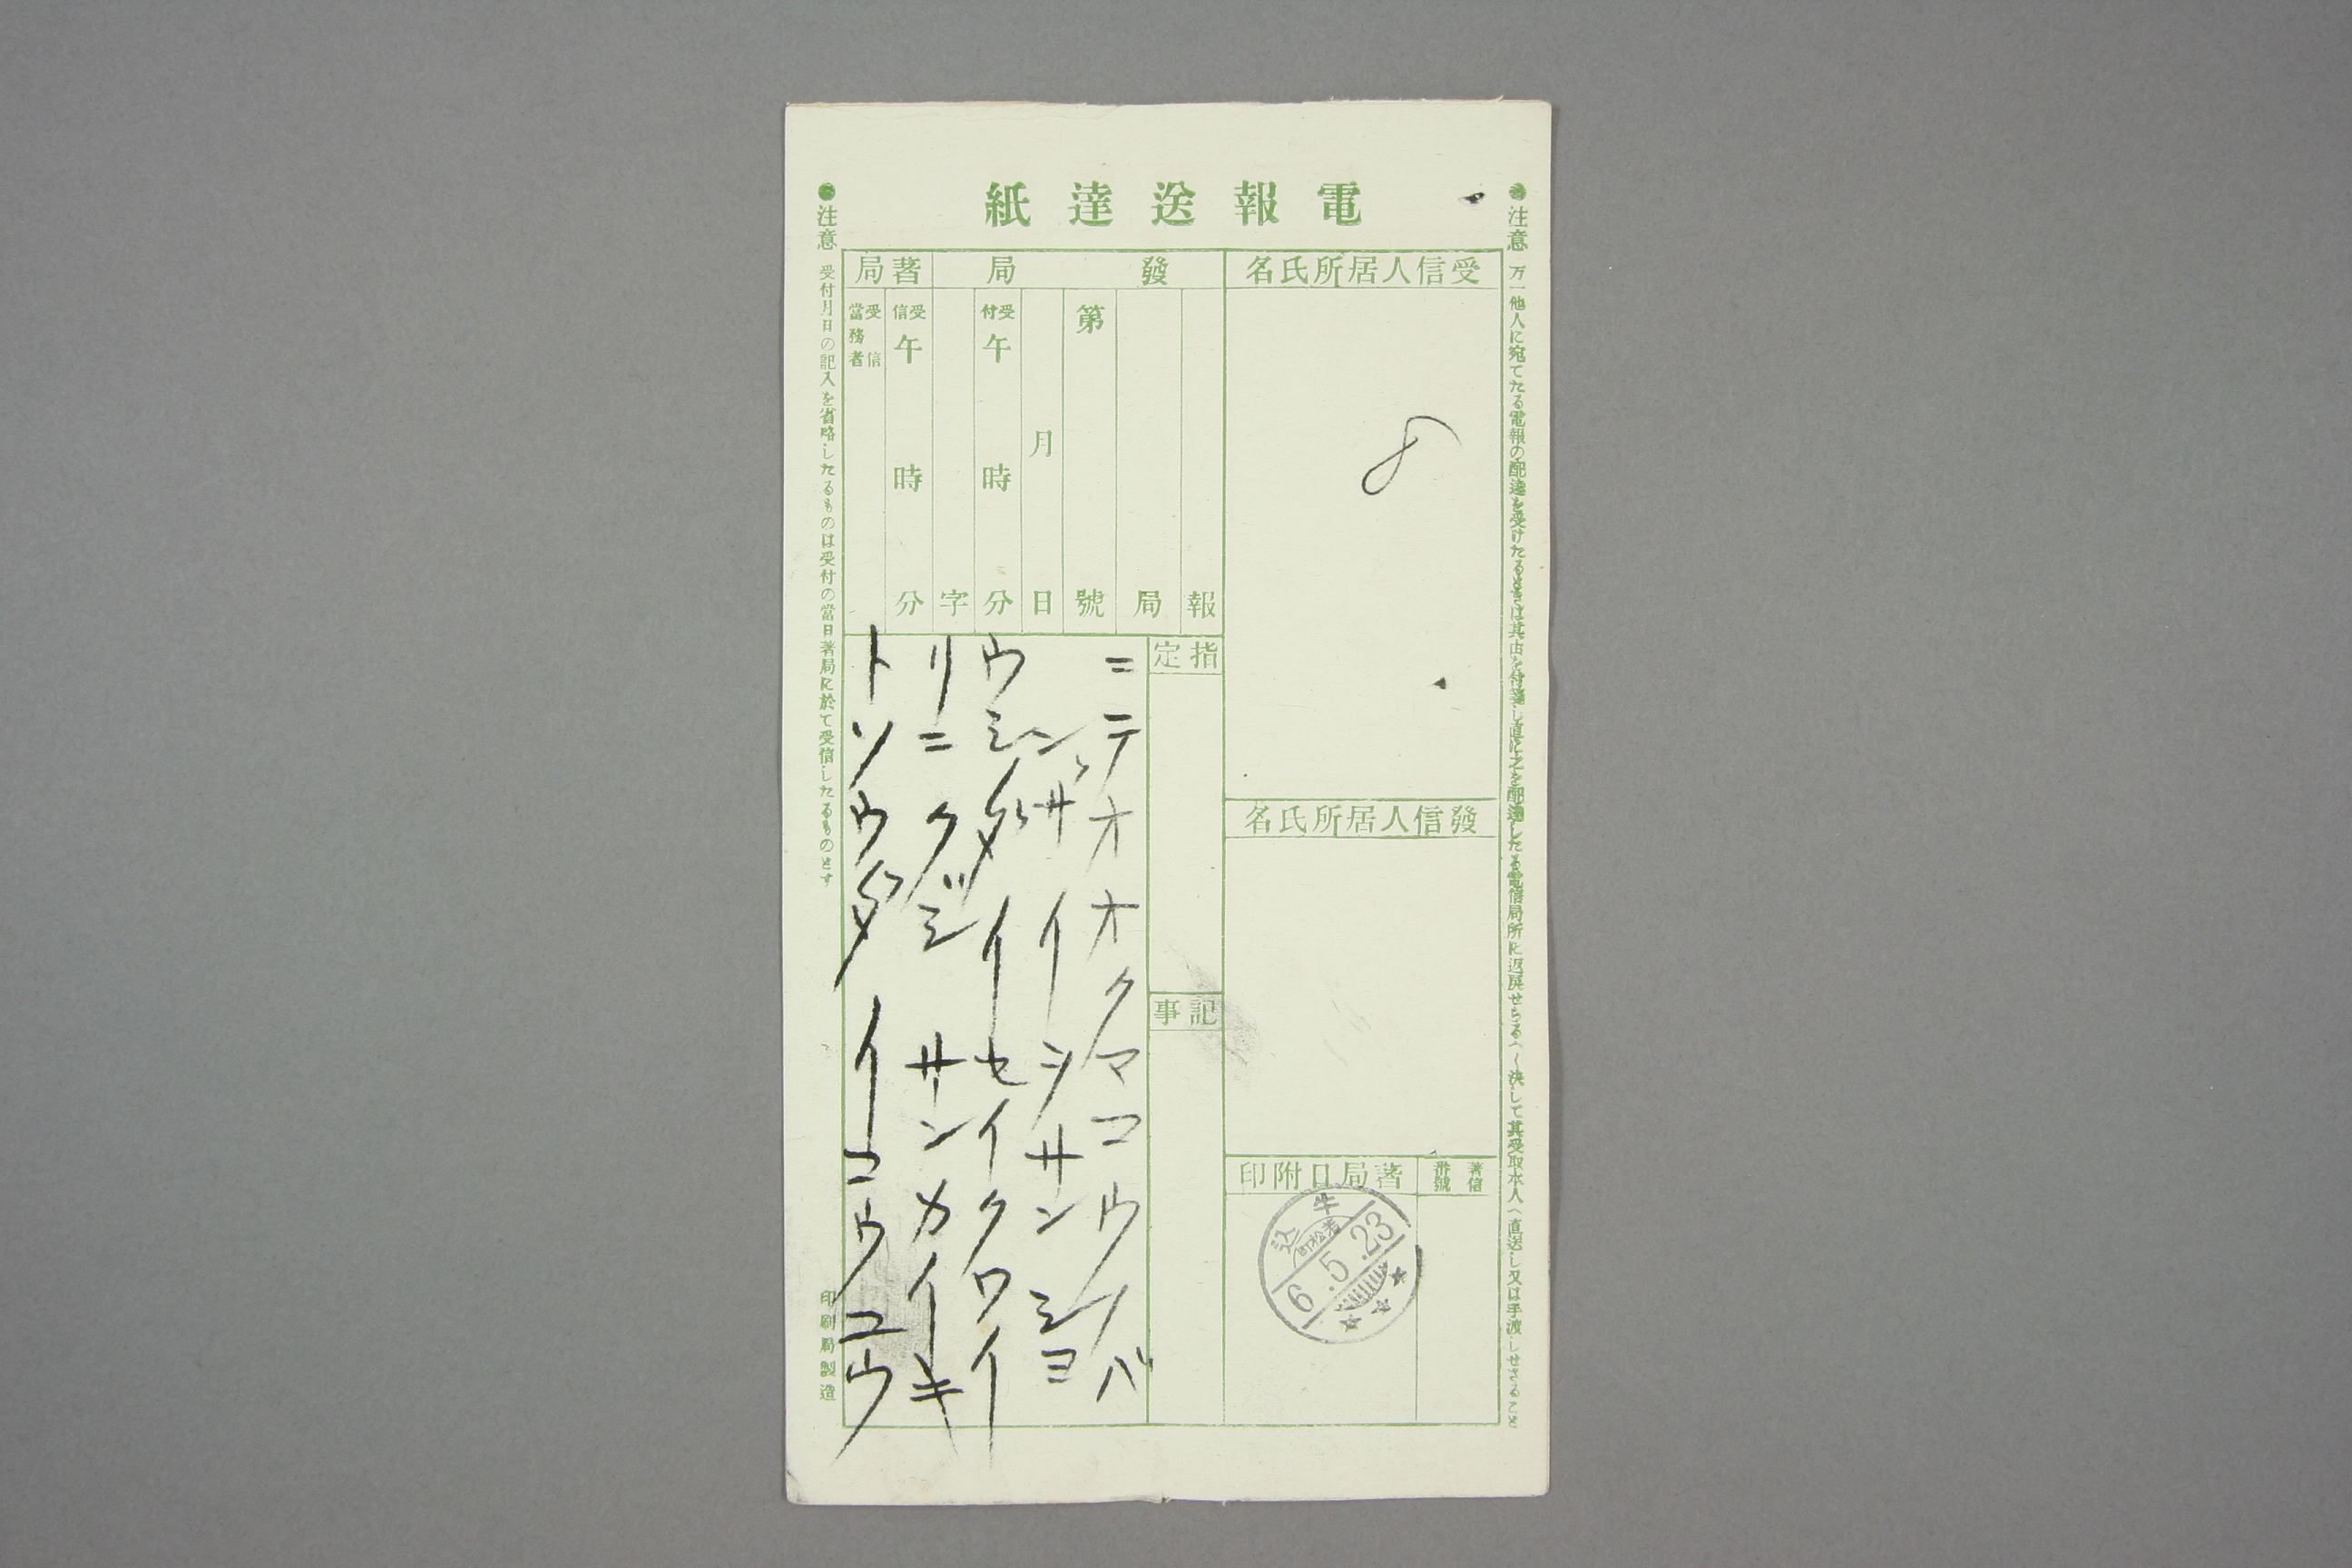 電報送達紙
●注意 万一他人に宛てたる電報の配達を受けたるときは其由を付箋し直に之を配達したる電信局所に返戻せらるへく決して其受取本人へ直送し又は手渡しせさること
受信人居所氏名
8
發信人居所氏名
著信番號
著局日附印
牛込
若松町
6.5.23
發局
報
局
第 號
月 日
受付 午 時 分
字
著局
受信 午 時 分
受信當務者
指定
記事
ニテオオクマコウノバ
ンザイシサンシヨ
ウシダイセイクワイ
リニクジサンカイキ
トソウダイコウユウ
●注意 受付月日の記入を省略したるものは受付の當日著局に於て受信したるものとす
印刷局製造